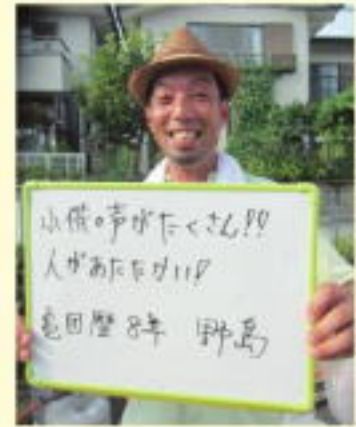 小供の声がたくさん!!
人があたたかい!
亀田歴8年 野島